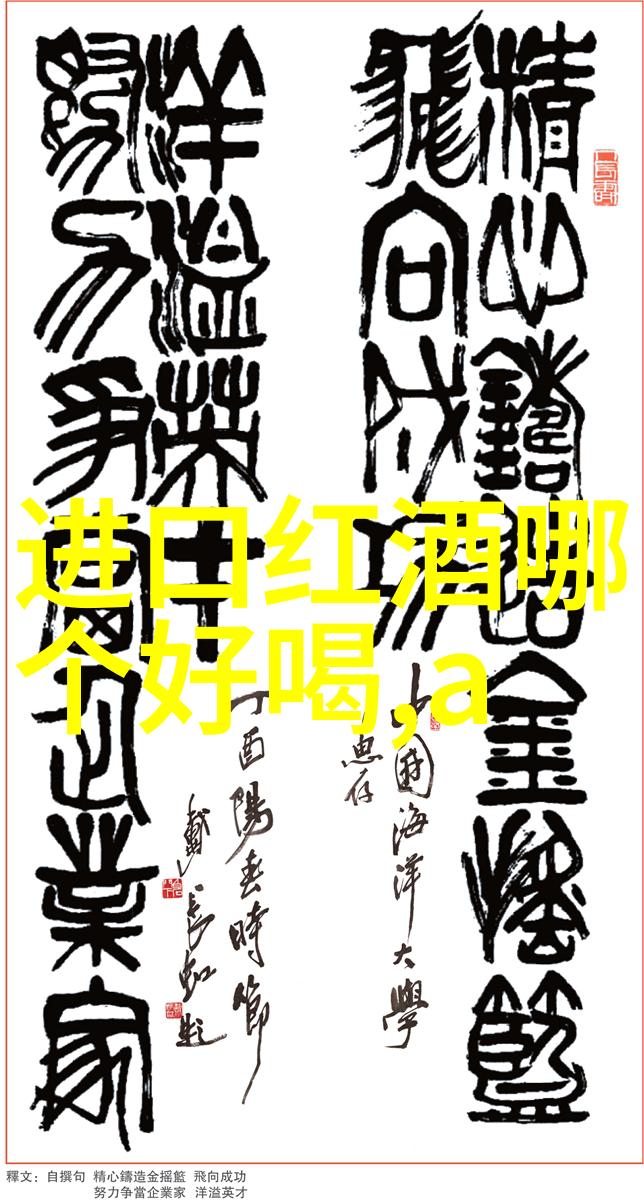 精心鑄造金摇籃
飛向成功
中國海洋大學
惠存
努力争當企業家
洋溢英才
丁酉陽春時節
戴長虹題
进口红酒哪
个好喝,a
釋文：自撰句 精心鑄造金摇籃 飛向成功
努力争當企業家 洋溢英才